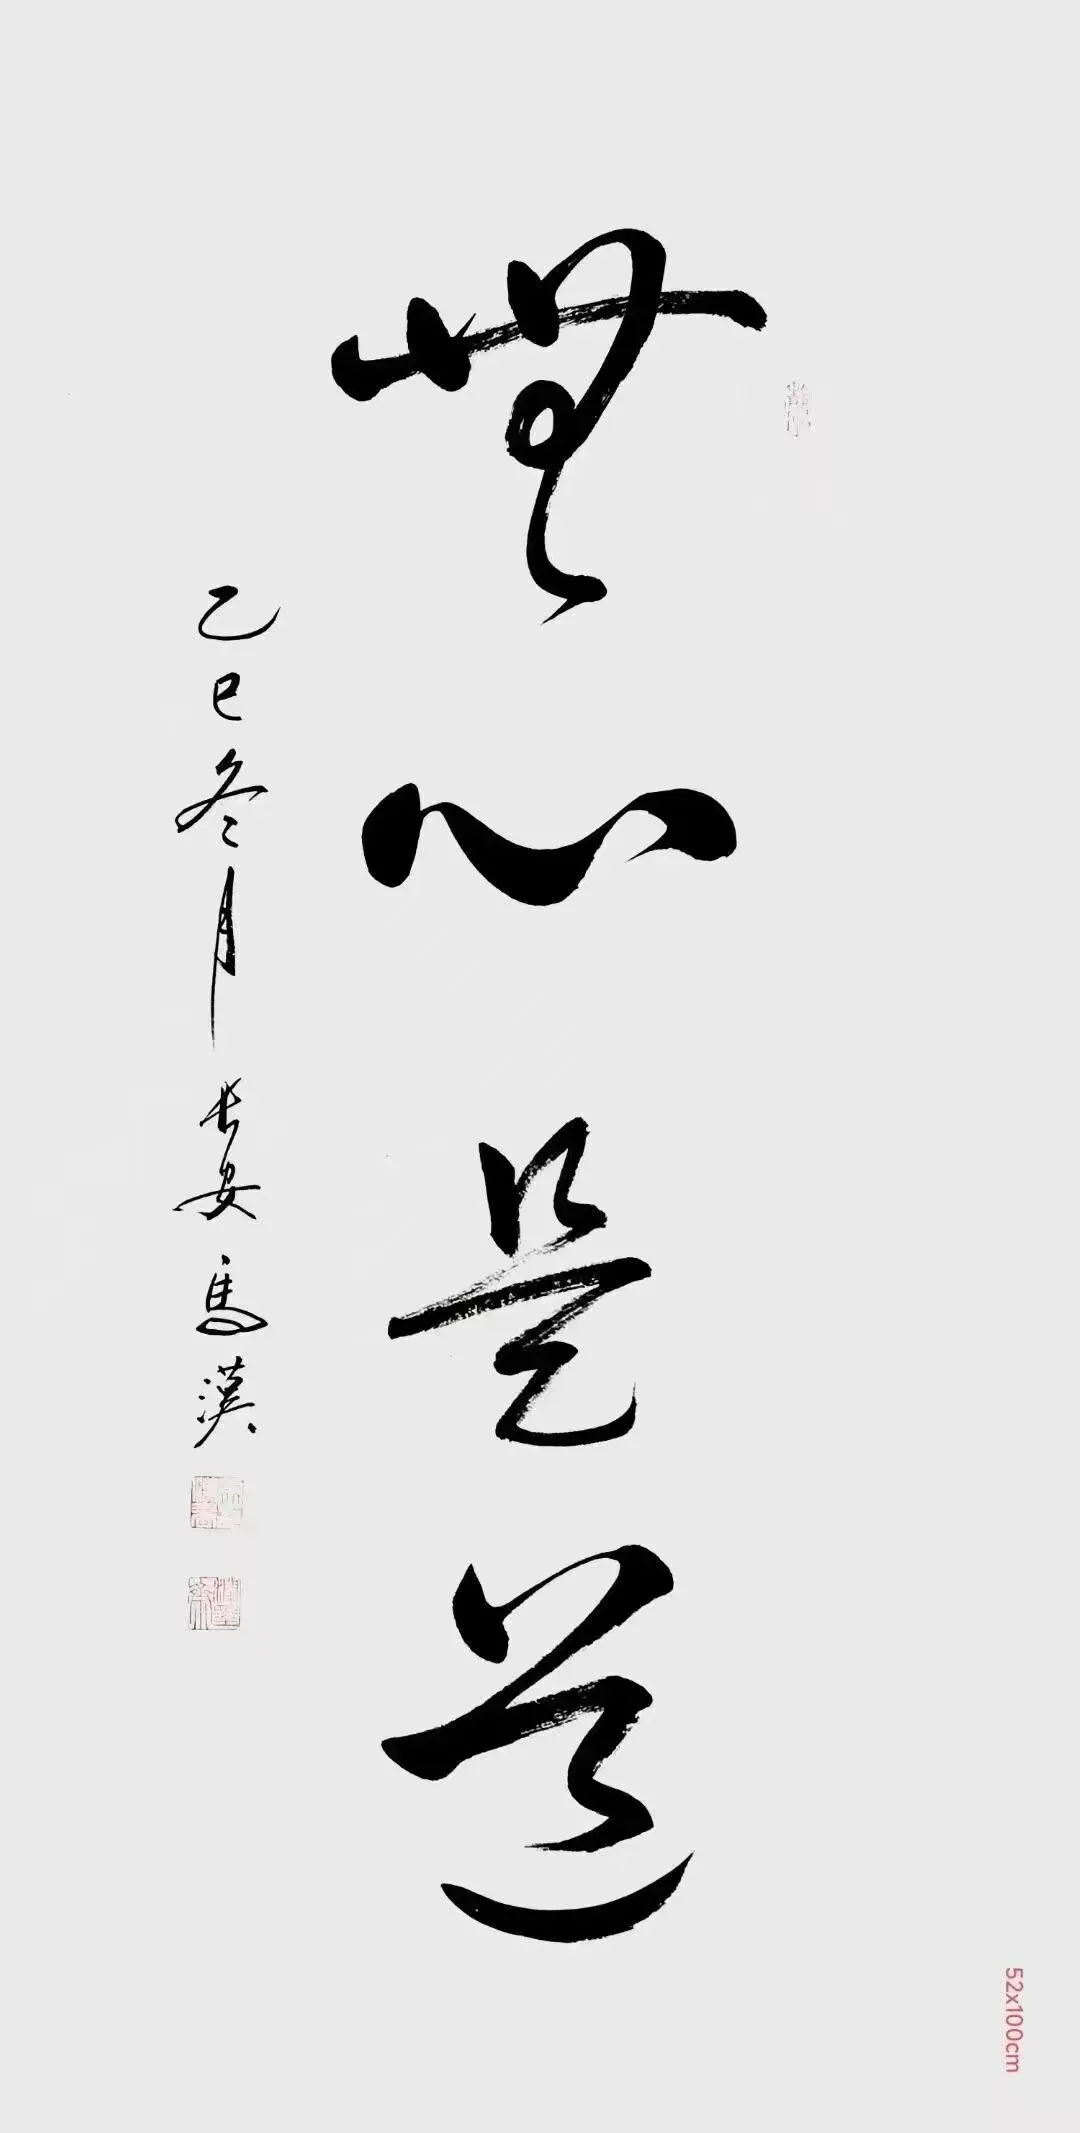 無心是道
乙巳冬月長安馬漠
52x100cm